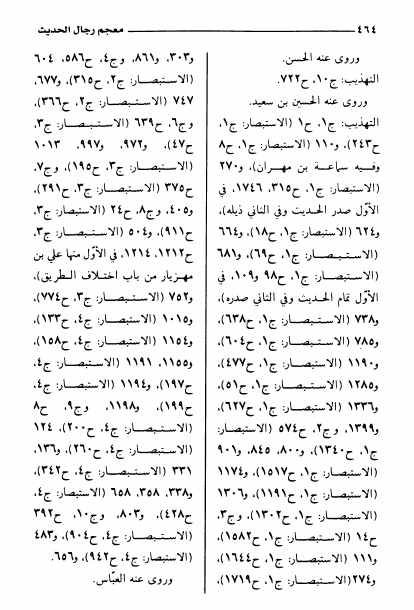 ٤٦٤ معجم رجال الحديث
وروى عنه الحسن.
التهذيب: ج١٠، ح٧٢٢.
وروى عنه الحسين بن سعيد.
التهذيب: ج١، ح١ (الاستبصار: ج١،
ح٢٤٣)، و١١٠ (الاستبصار: ج١، ح٨
وفيه سماعة بن مهران)، و٢٧٠
(الاستبصار: ج١، ح٣١٥، ١٧٤٦، في
الأوّل صدر الحديث وفي الثاني ذيله)،
و٦٢٤ (الاستبصار: ج١، ح١٨)، و٦٦٤
(الاستبصار: ج١، ح٦٩)، و٦٨١
(الاستبصار: ج١، ح٩٨ و١٠٩، في
الأوّل تمام الحديث وفي الثاني صدره)،
و٧٣٨ (الاستبصار: ج١، ح٦٣٨)،
و٧٨٥ (الاستبصار: ج١، ح٦٠٤)،
و١١٩٠ (الاستبصار: ج١، ح٤٧٧)،
و١٢٨٥ (الاستبصار: ج١، ح٥١)،
و١٣٣٦ (الاستبصار: ج١، ح٦٢٧)،
و١٣٩٩، وج٢، ح٥٧٤ (الاستبصار:
ج١، ح١٣٤٠)، و٨٠٠، ٨٤٥، و٩٠١
(الاستبصار: ج١، ح١٥١٧)، و١١٧٤
(الاستبصار: ج١، ح١١٩١)، و١٣٠٦
(الاستبصار: ج١، ح١٣٠٢)، وج٣،
ح١٤ (الاستبصار: ج١، ح١٥٨٢)،
و١١١ (الاستبصار: ج١، ح١٦٤٤)،
و٢٧٤(الاستبصار: ج١، ح١٧١٩)،
و٣٠٣، و٨٦١، وج٤، ح٥٨٦، ٦٠٤
(الاستبصار: ج٢، ح٣١٥)، و٦٧٧،
٧٤٧ (الاستبصار: ج٢، ح٣٦٦)،
وج٦، ح٦٣٩ (الاستبصار: ج٣،
ح٤٧)، و٩٧٢، و٩٩٧، ١٠١٣
(الاستبصار: ج٣، ح١٩٥)، وج٧،
ح٣٧٥ (الاستبصار: ج٣، ح٢٩١)،
و٤٠٥، وج٨، ح٢٤ (الاستبصار: ج٣،
ح٩١١)، و٥٠٤ (الاستبصار: ج٣،
ح١٢١٢، ١٢١٤، في الأوّل منها علي بن
مهزيار من باب اختلاف الطريق)،
و٧٥٢ (الاستبصار: ج٣، ح٧٧٤)،
و١٠١٥ (الاستبصار: ج٤، ح١٣٣)،
و١١٥٤ (الاستبصار: ج٤، ح١٥٨)،
و١١٥٥، ١١٩١ (الاستبصار: ج٤،
ح١٩٧)، و١١٩٤ (الاستبصار: ج٤،
ح١٩٩)، و١١٩٨، وج٩، ح٨
(الاستبصار: ج٤، ح٢٠٠)، ١٢٤
(الاستبصار: ج٤، ح٢٦٠)، و١٣٦،
٣٣١ (الاستبصار: ج٤، ح٣٤٢)،
و٣٣٨، ٣٥٨، ٦٥٨ (الاستبصار: ج٤،
ح٤٢٨)، و٨٠٣، وج١٠، ح٣٩٢
(الاستبصار: ج٤، ح٩٠٤)، و٤٨٣
(الاستبصار: ج٤، ح٩٤٢)، و٦٥٦.
وروى عنه العبّاس.